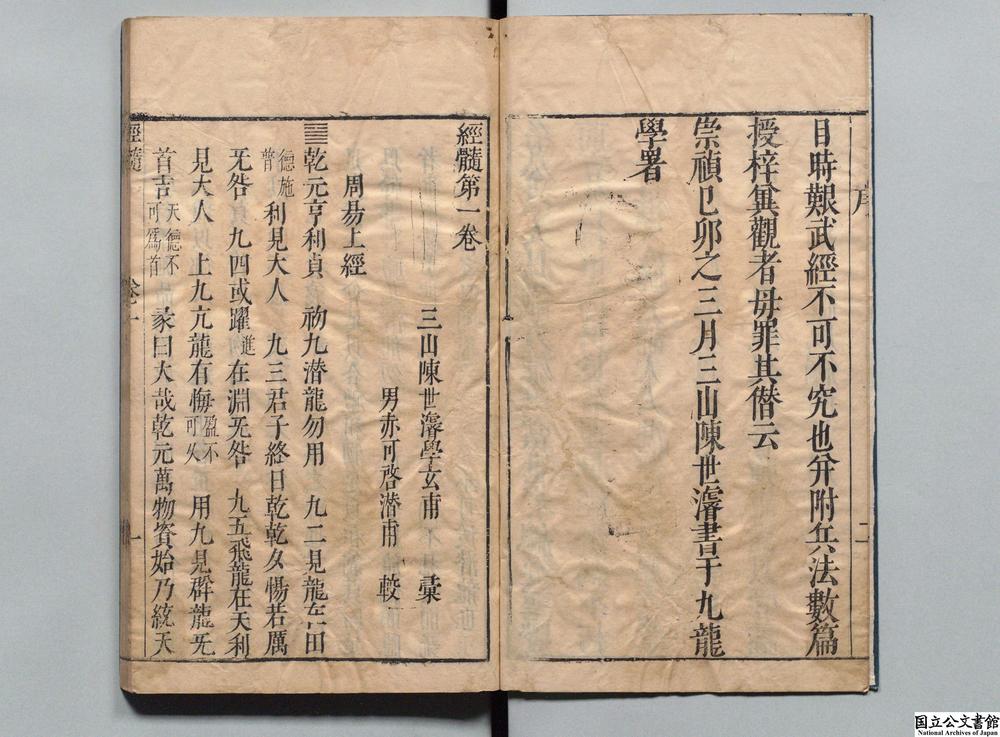 序
目時艱武經不可不究也并附兵法數篇
授梓冀觀者毋罪其僭云
崇禎己卯之三月三山陳世濬書于九龍
學署
二
經髓第一卷
三山陳世濬學玄甫 彙
男赤可啓潛甫 較
周易上經
䷀乾元亨利貞 初九潛龍勿用 九二見龍在田
德施普利見大人 九三君子終日乾乾夕惕若厲
无咎 九四或躍進在淵无咎 九五飛龍在天利
見大人 上九亢龍有悔盈不可久 用九見群龍无
首吉天德不可爲首 彖曰大哉乾元萬物資始乃統天
經髓
卷一
一
国立公文書館
National Archives of Japan